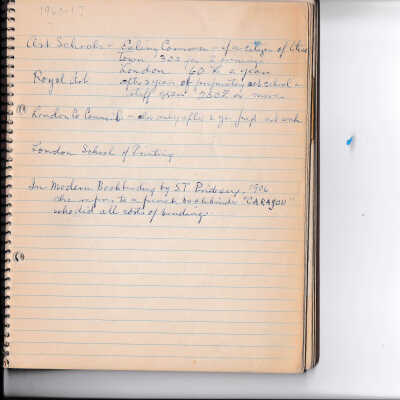 1960-61
Art Schools - Ealing Common - if a citizen of the
town 30s for 2 evenings
London £60 a year
Royal Art after 2 years of preparatory art school -
stiff exam £200 or more
London Co Council - for only after 2 yrs prep art work
London School of Printing
In Modern Bookbinding by S.T. Prideaux, 1906
she refers to a french bookbinder "CARAYON"
who did all sorts of bindings.